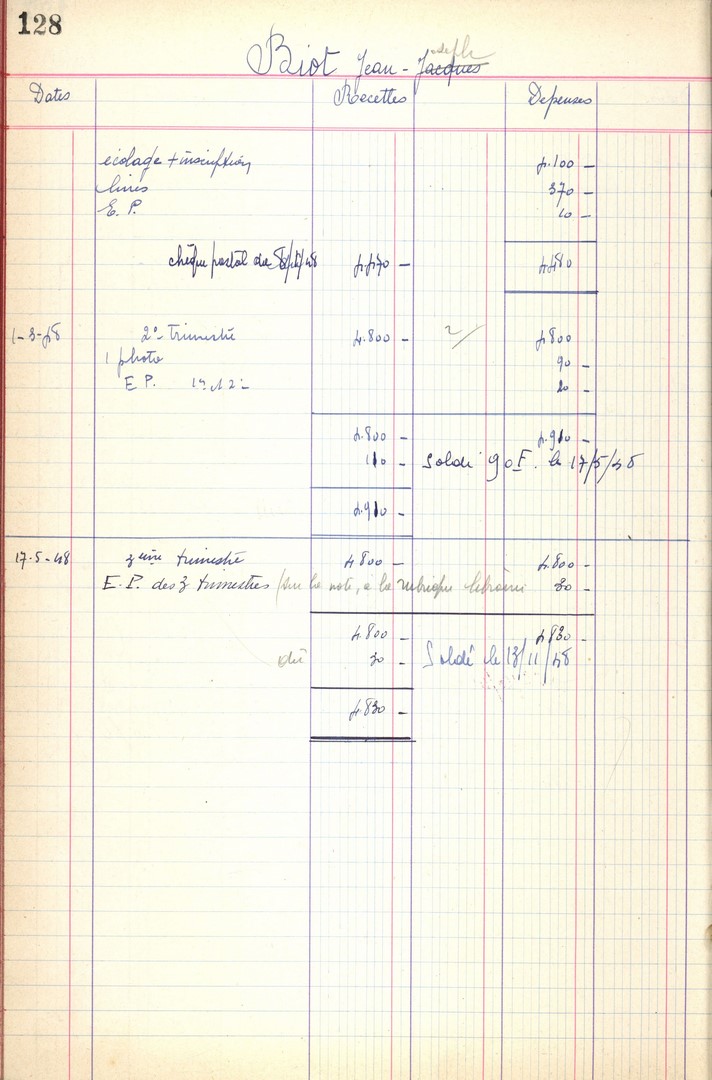 128
Biot Jean-Jacques
Joseph
Dates Recettes Dépenses
écolage + inscription 4.100 -
livres 370 -
E. P. 10 -
chèque postal du /48 4.470 - 4480
1-3-48 2e trimestre 4.800 - 4800
1 photo 90 -
E P. 1e et 2e 20 -
4.800 - 4.910 -
110 - Soldé 90F. le 17/5/48
4.910 -
17-5-48 3ème trimestre 4800 - 4.800 -
E. P. des 3 trimestres (sur la note, à la rubrique librairie 30 -
4.800 - 4830 -
dû 30 - Soldé le 13/11/48
4.830 -